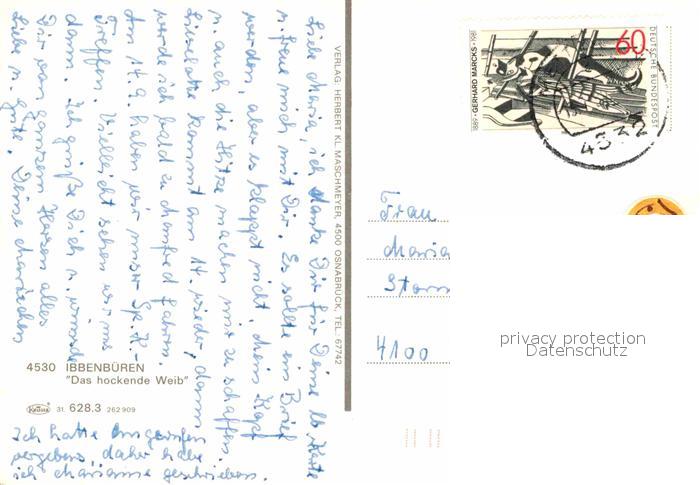 Liebe Maria, ich danke Dir für Deine lb. Karte
u. freue mich mit Dir. Es sollte ein Brief
werden, aber es klappt nicht, mein Kopf
u. auch die Hitze machen mir zu schaffen.
kommt am 14. wieder, dann
werde ich bald zu Manfred fahren.
Am 14.9. haben wir unser Sp. K-
Treffen. Vielleicht sehen wir uns
dann. Ich grüße Dich u. wünsche
Dir von ganzem Herzen alles
Liebe u. Gute. Deine
Ich hatte angerufen
vergebens, daher habe
ich Marianne geschrieben.
4530 IBBENBÜREN
"Das hockende Weib"
Krüger 31. 628.3 262909
VERLAG: HERBERT KL. MASCHMEYER, 4500 OSNABRÜCK, TEL. 67742
1889 · GERHARD MARCKS · 1981
60
DEUTSCHE BUNDESPOST
Frau
Maria
4100
privacy protection
Datenschutz